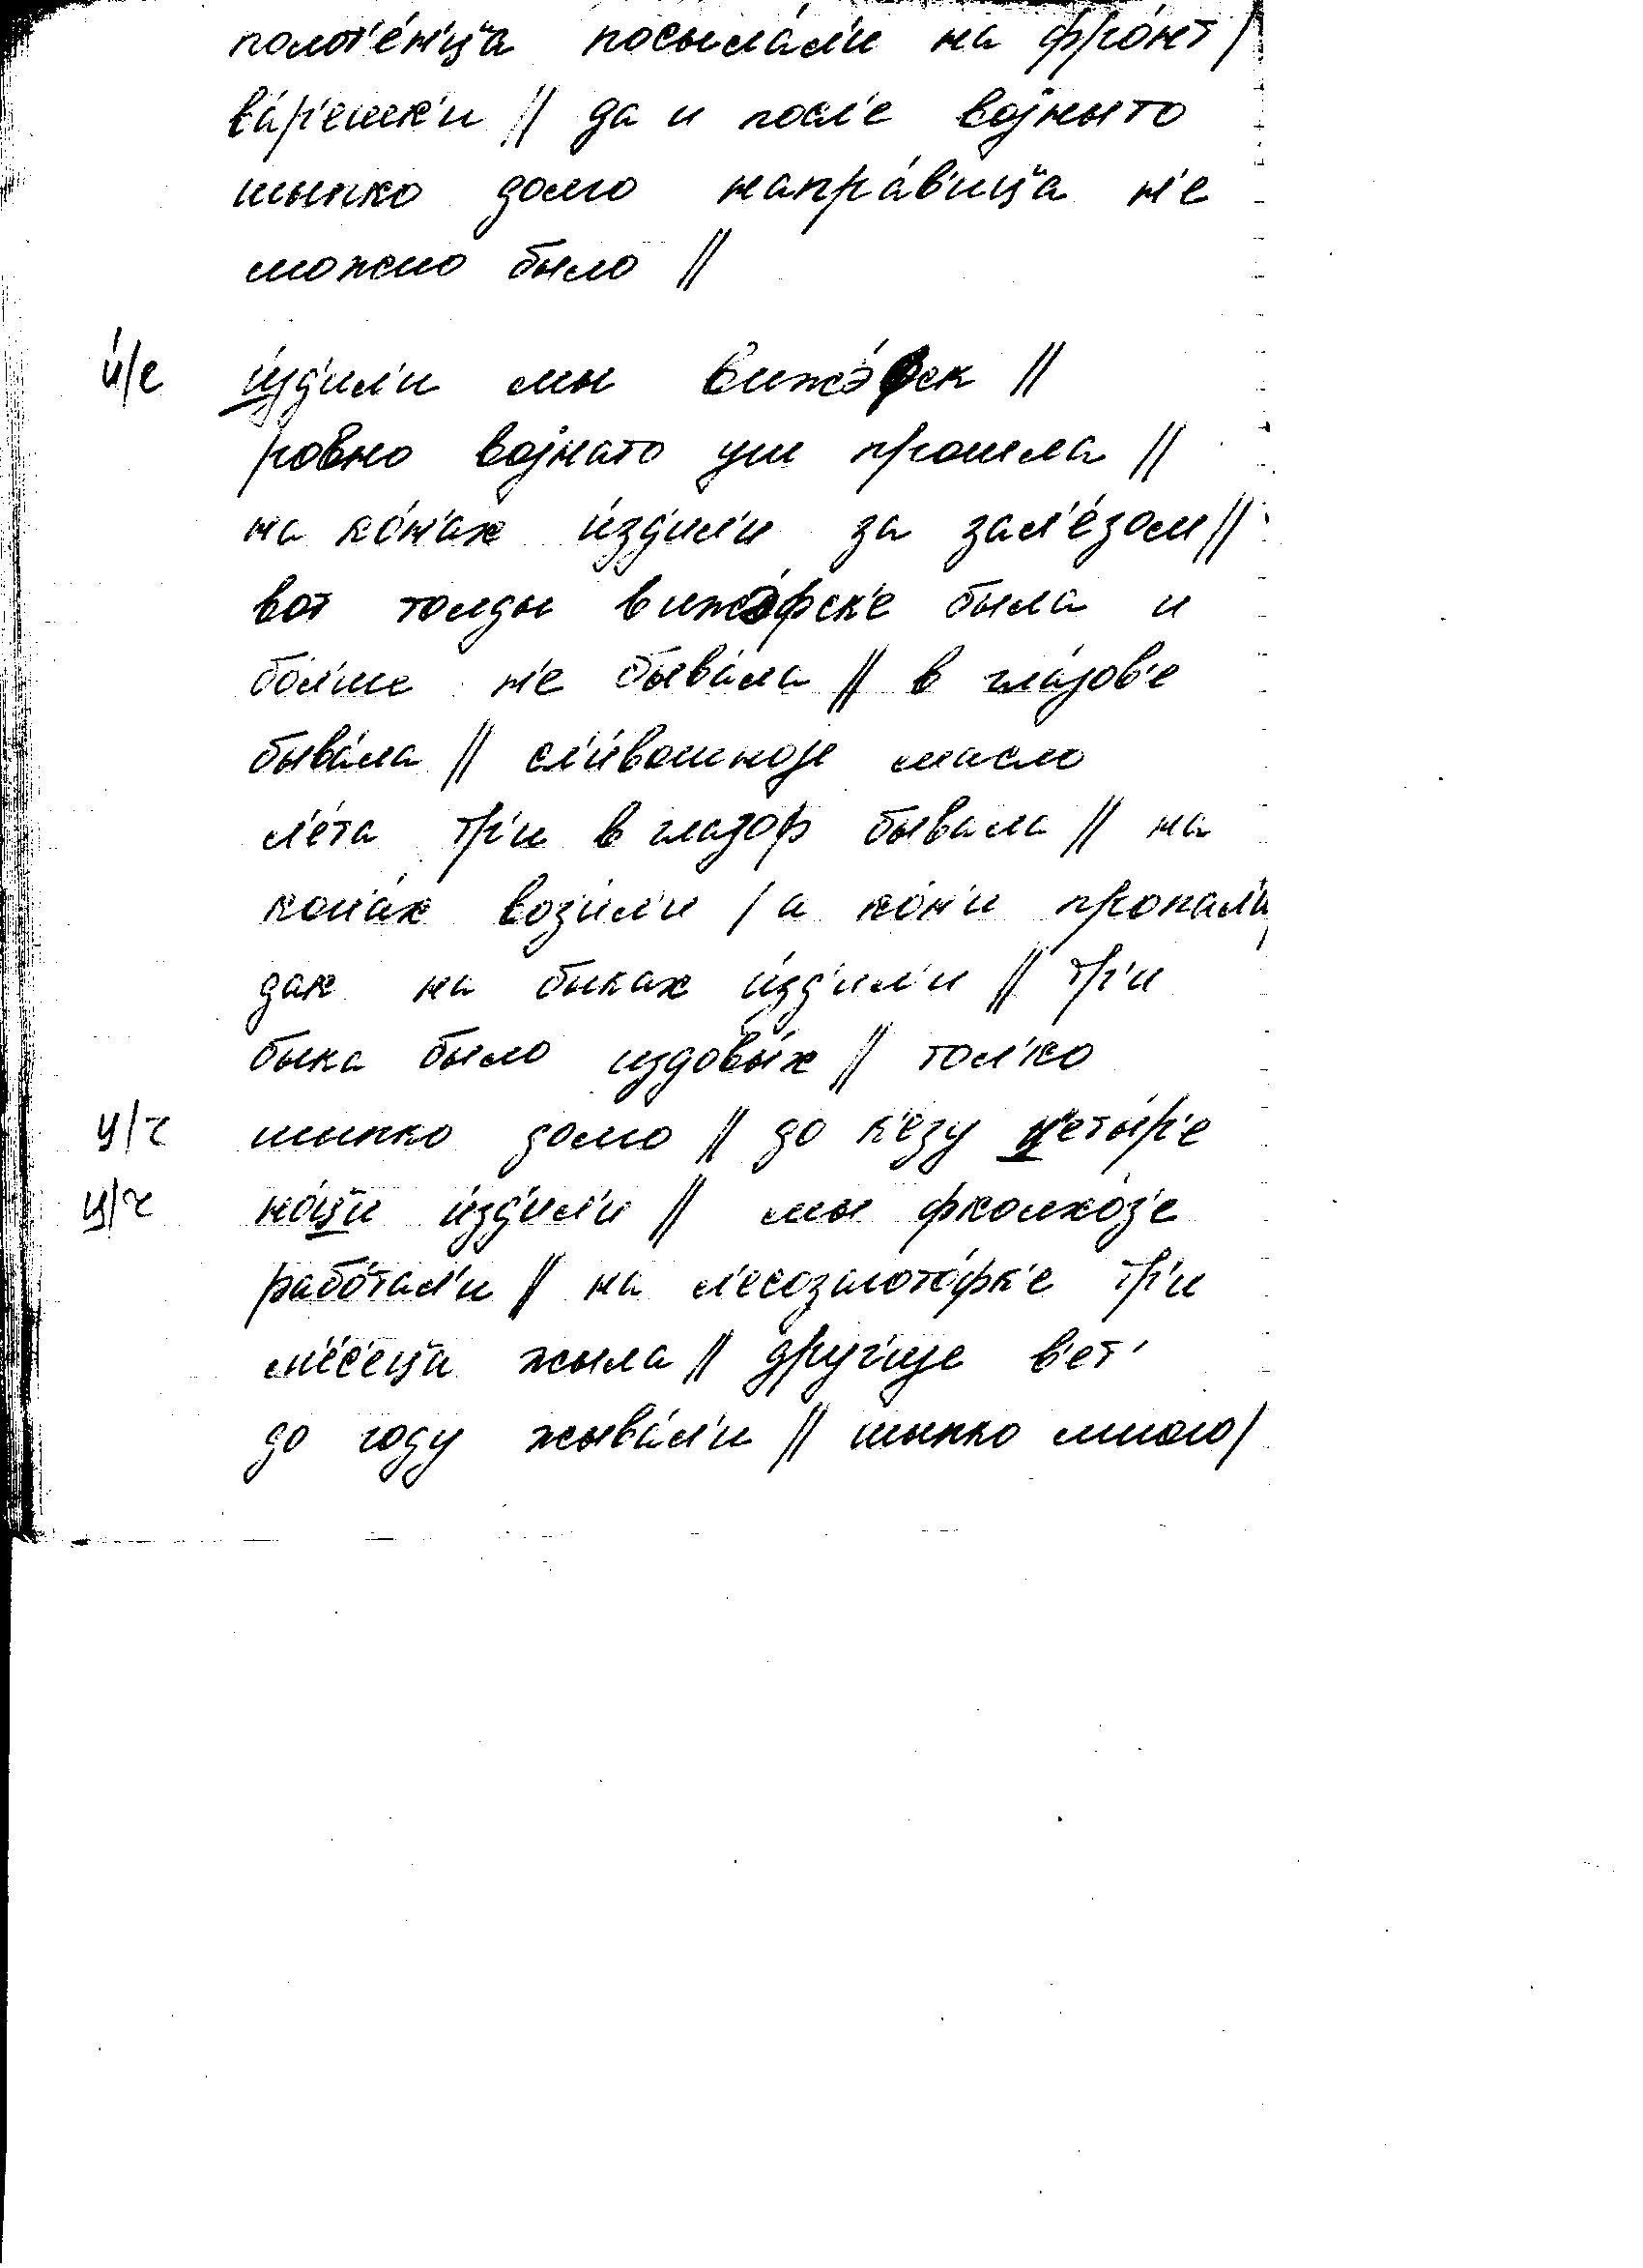 полот'е́н'ц̌а посыла́л'и на фро́нт /
ва́р'ешк'и // да и посл'е војныто
шыпко долго напра́в'иц̌а н'е
можно было //
и́/е и́зд'ил'и мы вижэ́фск //
ровно војнато уш прошла //
на ко́н'ах и́зд'ил'и за зал'е́зом //
вот толды вижэ́фск'е была и
бол'ше н'е быва́ла // в гла́зов'е
быва́ла // сл'и́вошноје масло
л'е́та тр'и в глазоф бывала // на
кон'а́х воз'и́л'и / а ко́н'и пропал'и
дак на быках и́зд'ил'и // тр'и
быка было издовы́х // тол'ко
ц/ч шыпко долго // до к'езу ц'еты́р'е
ц/ч но́ц̌и и́зд'ил'и // мы фколхо́з'е
рабо́тал'и // на л'есозагото́фк'е тр'и
м'е́с'ец̌а жыла // друг'ије в'ет'
до году жыва́л'и // шыпко много /